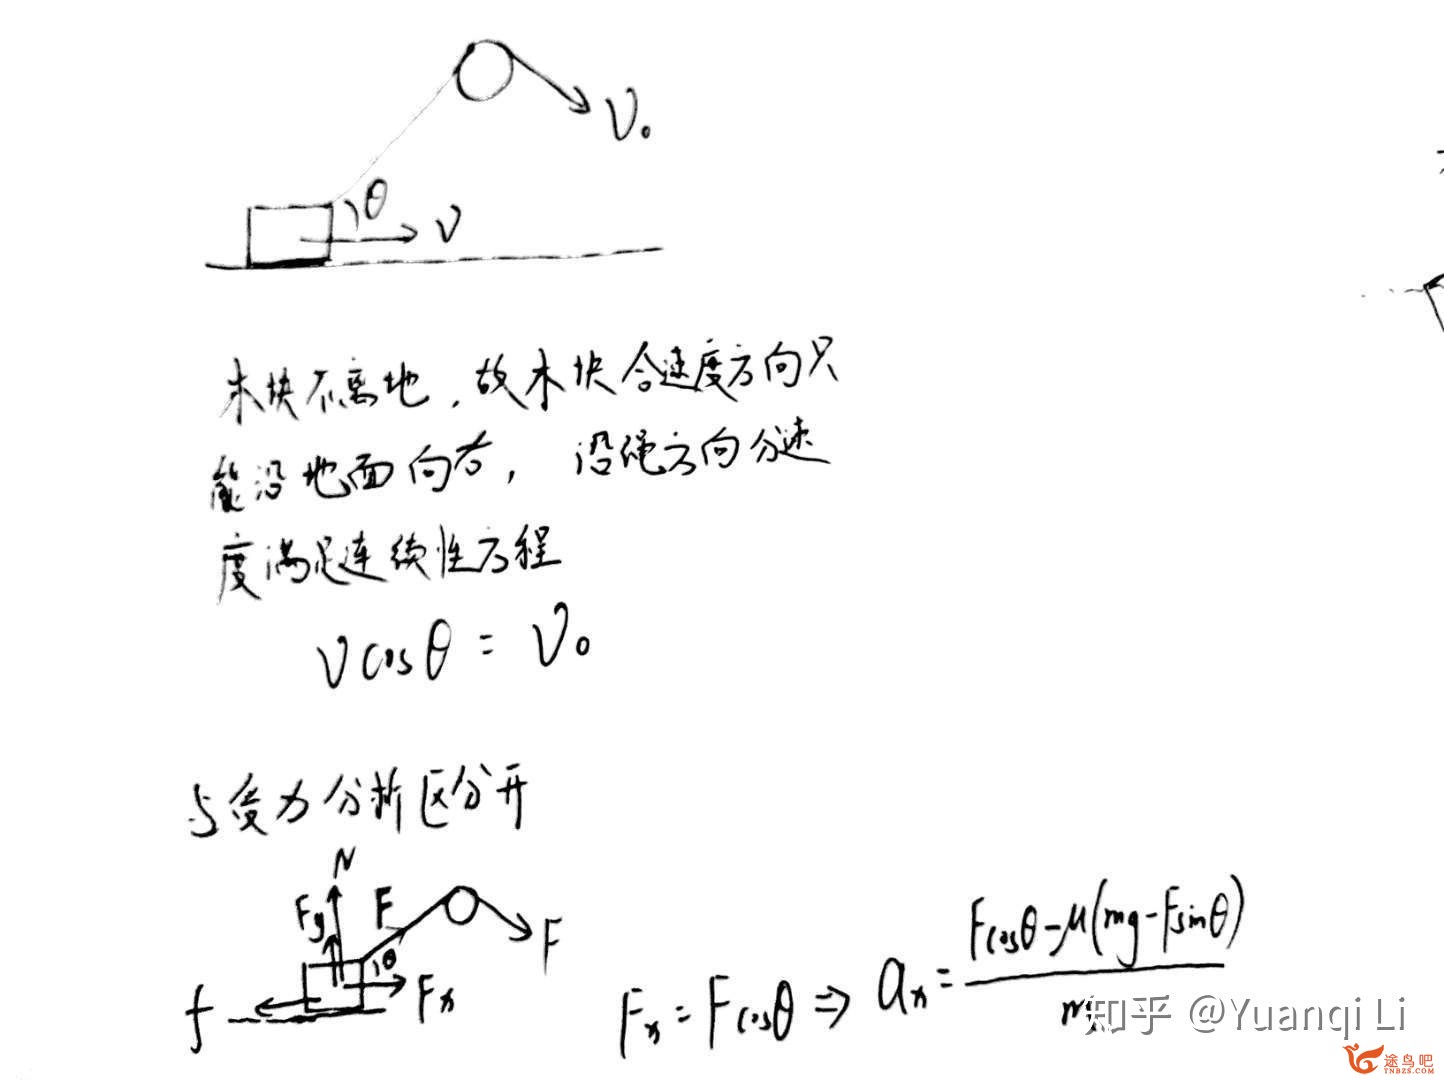 V₀
θ
V
木块不离地,故木块合速度方向只
能沿地面向右, 沿绳方向分速
度满足连续性方程
Vcosθ = V₀
与受力分析区分开
N
Fy F
θ F
f Fx
Fx = Fcosθ ⇒ ax = Fcosθ-μ(mg-Fsinθ)
m
知乎 @Yuanqi Li
途鸟吧
TNBZS.COM